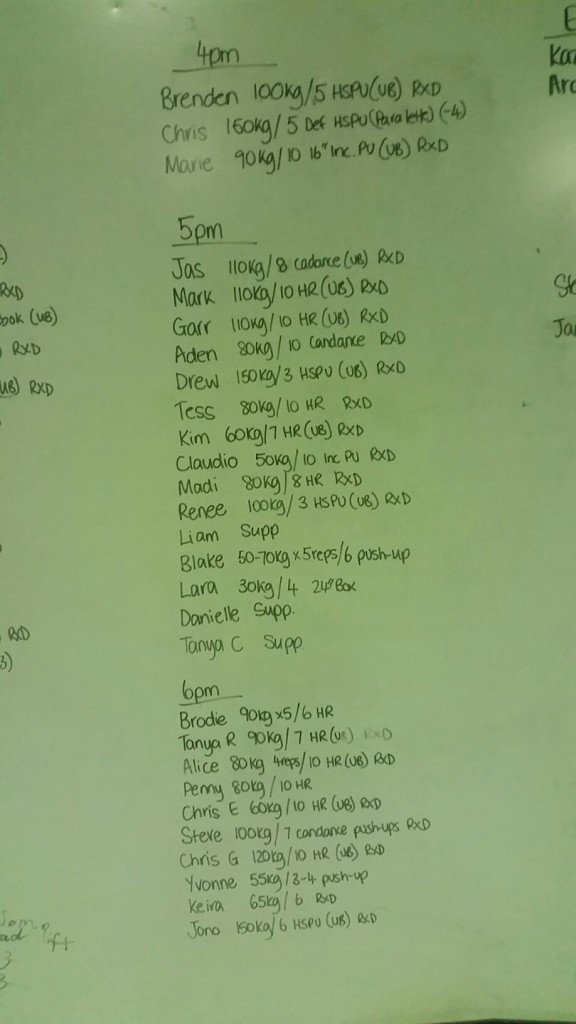 4pm
Brenden 100kg/5 HSPU(UB) RXD
Chris 160kg/5 Def HSPU(Paralette)(-4)
Marie 90kg/10 16" Inc. PU (UB) RXD
5pm
Jas 110kg/8 cadance (UB) RXD
Mark 110kg/10 HR (UB) RXD
Garr 110kg/10 HR (UB) RXD
Aden 80kg/10 candance RXD
Drew 150kg/3 HSPU (UB) RXD
Tess 80kg/10 HR RXD
Kim 60kg/7 HR (UB) RXD
Claudio 50kg/10 Inc PU RXD
Madi 80kg/8 HR RXD
Renee 100kg/3 HSPU (UB) RXD
Liam Supp
Blake 50-70kg x 5reps/6 push-up
Lara 30kg/4 24" Box
Danielle Supp.
Tanya C Supp
6pm
Brodie 90kg x5/6 HR
Tanya R 90kg/7 HR (UB) RXD
Alice 80kg 4reps/10 HR (UB) RXD
Penny 80kg/10 HR
Chris E 60kg/10 HR (UB) RXD
Steve 100kg/7 candance push-ups RXD
Chris G 120kg/10 HR (UB) RXD
Yvonne 55kg/3-4 push-up
Keira 65kg/6 RXD
Jono 150kg/6 HSPU (UB) RXD
)
RXD
ook (UB)
) RXD
UB) RXD
RXD
3)
ft
3
E
Ste
Ja